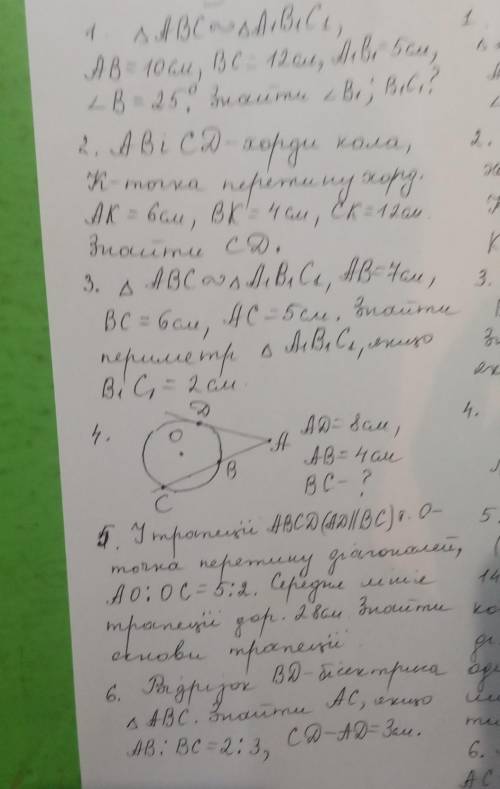 1. △ ABC ∾ △ A₁B₁C₁,
AB = 10 см, BC = 12 см, A₁B₁ = 5 см,
∠B = 25°. Знайти ∠B₁; B₁C₁?
2. AB і CD – хорди кола,
K – точка перетину хорд.
AK = 6 см, BK = 4 см, CK = 12 см
Знайти CD.
3. △ ABC ∾ △ A₁B₁C₁, AB = 7 см,
BC = 6 см, AC = 5 см. Знайти
периметр △ A₁B₁C₁, якщо
B₁C₁ = 2 см
4.
D
O
A
B
C
AD = 8 см,
AB = 4 см
BC – ?
5. У трапеції ABCD (AD || BC) т. O –
точка перетину діагоналей,
AO : OC = 5 : 2. Середня лінія
трапеції дор. 28 см. Знайти
основи трапеції
6. Відрізок BD – бісектриса
△ ABC. Знайти AC, якщо
AB : BC = 2 : 3, CD – AD = 3 см.
1.
2.
3.
4.
5.
14
6.
AC